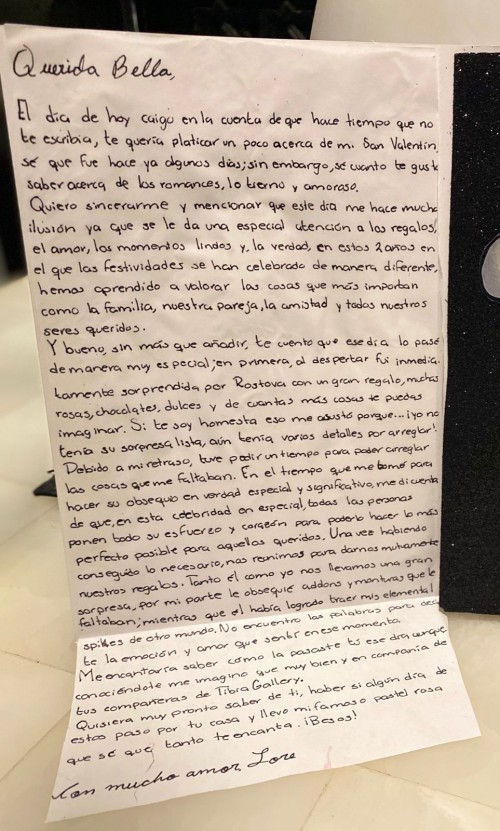 Querida Bella,
El dia de hoy caigo en la cuenta de que hace tiempo que no
te escribia, te queria platicar un poco acerca de mi San Valentin,
sé que fue hace ya algunos dias; sin embargo, sé cuanto te gusta
saber acerca de los romances, lo tierno y amoroso.
Quiero sincerarme y mencionar que este dia me hace mucha
ilusión ya que se le da una especial atención a los regalos,
el amor, los momentos lindos y, la verdad, en estos 2 años en
el que las festividades se han celebrado de manera diferente,
hemos aprendido a valorar las cosas que más importan
como la familia, nuestra pareja, la amistad y todos nuestros
seres queridos.
Y bueno, sin más que añadir, te cuento que ese dia lo pasé
de manera muy especial; en primera, al despertar fui inmedia-
tamente sorprendida por Rostova con un gran regalo, muchas
rosas, chocolates, dulces y de cuantas más cosas te puedas
imaginar. Si te soy honesta eso me asustó porque... ¡yo no
tenia su sorpresa lista, aún tenia varios detalles por arreglar!
Debido a mi retraso, tuve pedir un tiempo para poder arreglar
las cosas que me faltaban. En el tiempo que me tomé para
hacer su obsequio en verdad especial y significativo, me di cuenta
de que, en esta celebridad en especial, todas las personas
ponen todo su esfuerzo y corazón para poderlo hacer lo más
perfecto posible para aquellos queridos. Una vez habiendo
conseguido lo necesario, nos reunimos para darnos mutuamente
nuestros regalos. Tanto él como yo nos llevamos una gran
sorpresa, por mi parte le obsequié addons y monturas que le
faltaban; mientras que él habia logrado traer mis elemental
spikes de otro mundo. No encuentro las palabras para decir
te la emoción y amor que sentí en ese momento.
Me encantaria saber cómo la pasaste tú ese dia, aunque
conociéndote me imagino que muy bien y en compañia de
tus compañeras de Tibia Gallery.
Quisiera muy pronto saber de ti, haber si algún dia de
estos paso por tu casa y llevo mi famoso pastel rosa
que sé que tanto te encanta. ¡Besos!
Con mucho amor, Lore